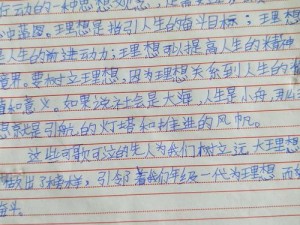 动的一种思想观念，
冲蓝图。理想是指引人生的奋斗目标；理想
是人生的前进动力；理想可以提高人生的精神
境界。要树立理想，因为理想关系到人生的
和意义。如果说社会是大海，人生是小舟，
就是引航的灯塔和推进的风帆。
这些可歌可泣的先人为我们树立远大理想
做出了榜样，引领着我们年轻一代为理想而